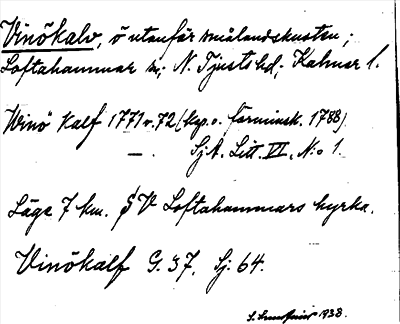 Vinökalv, ö utanför smålandskusten;
Loftahammar sn; N. Tjusts hd; Kalmar l.
Winö Kalf 1771 o. 72 (kop. o. förminsk. 1788)
— SjA. Litt. VI, N:o 1.
Läge 7 km. SV Loftahammars kyrka.
Vinökalf G. 37. Sj: 64.
S. 1938